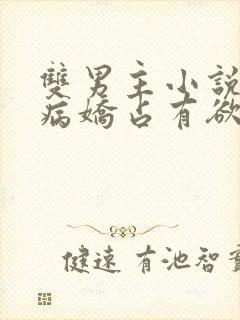 雙男主小說
病嬌占有欲
健速 有池智